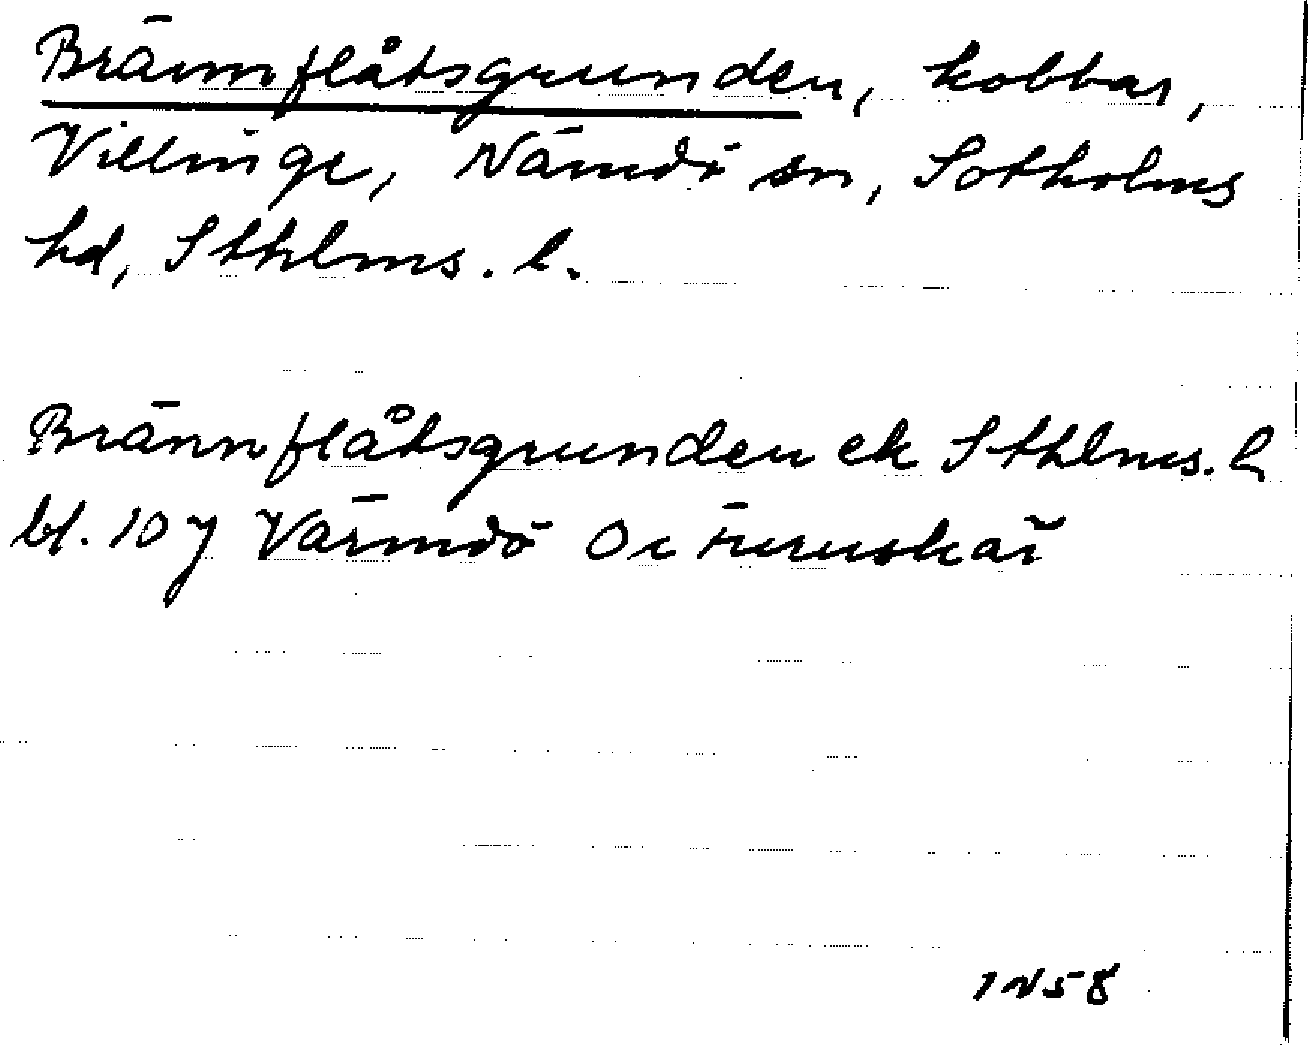 Brännflåtsgrunden, kobbar,
Villinge, Nämdö sn, Sotholms
hd, Sthlms. l.
Brännflåtsgrunden ek Sthlms. l
bl. 10 y Värmdö
1N58